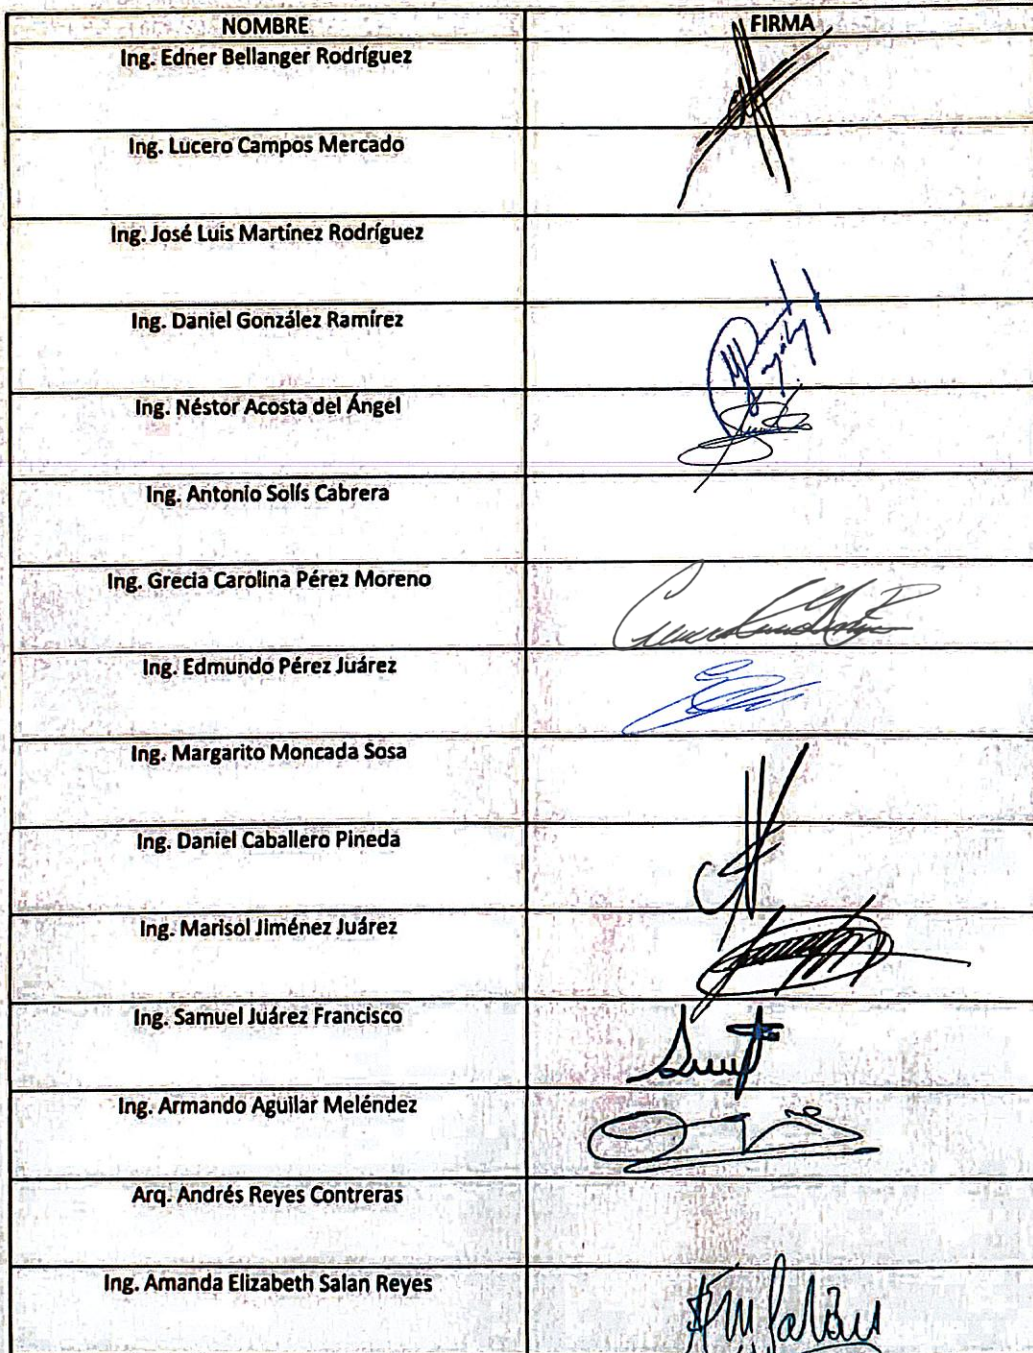 NOMBRE FIRMA
Ing. Edner Bellanger Rodríguez
Ing. Lucero Campos Mercado
Ing. José Luis Martínez Rodríguez
Ing. Daniel González Ramírez
Ing. Néstor Acosta del Ángel
Ing. Antonio Solís Cabrera
Ing. Grecia Carolina Pérez Moreno
Ing. Edmundo Pérez Juárez
Ing. Margarito Moncada Sosa
Ing. Daniel Caballero Pineda
Ing. Marisol Jiménez Juárez
Ing. Samuel Juárez Francisco
Ing. Armando Aguilar Meléndez
Arq. Andrés Reyes Contreras
Ing. Amanda Elizabeth Salan Reyes